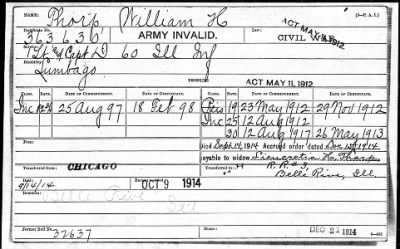 Thorp William H
363636 ARMY INVALID. CIVIL WAR
ACT MAY 11, 1912
1st Lt & Capt D 60 Ill Inf
Disability: Lumbago
ISSUES
ACT MAY 11, 1912
CLASS. RATE. DATE OF COMMENCEMENT. DATE OF CERTIFICATE. CLASS. RATE. DATE OF COMMENCEMENT. DATE OF CERTIFICATE.
Inc 25 Aug 97 18 Feb 98 19 23 May 1912 29 Nov 1912
Inc 25 12 Aug 1912
30 12 Aug 1917 26 May 1913
Died Sept 14, 1914 Accrued order dated Dec 1914
payable to widow Thorp
Transferred from CHICAGO R.R. # 3,
Belle Rive, Ill.
9/14/14 OCT 9 1914
Belle Rive
Ill
Former Roll No. 32637 DEC 23 1914